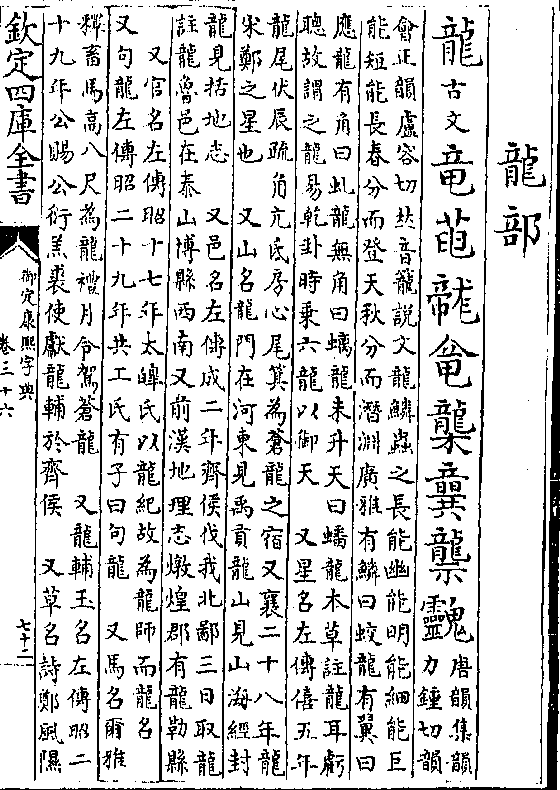 龍部
龍 古文 竜 唐韻集韻
力鍾切韻
會正韻盧容切𠀤音籠說文龍鱗蟲之長能幽能明能細能巨
能短能長春分而登天秋分而潛淵廣雅有鱗曰蛟龍有翼曰
應龍有角曰虬龍無角曰螭龍未升天曰蟠龍木草註龍耳虧
聰故謂之龍易乾卦時乗六龍以御天 又星名左傳僖五年
龍尾伏辰疏角亢氐房心尾箕為蒼龍之宿又襄二十八年龍
宋鄭之星也 又山名龍門在河東見禹貢龍山見山海經封
龍見括地志 又邑名左傳成二年齊侯伐我北鄙三日取龍
註龍魯邑在泰山博縣西南又前漢地理志燉煌郡有龍勒縣
又官名左傳昭十七年太皥氏以龍紀故為龍師而龍名
又句龍左傳昭二十九年共工氏有子曰句龍 又馬名爾雅
釋畜馬高八尺為龍禮月令駕蒼龍 又龍輔玉名左傳昭二
十九年公賜公衍羔裘使獻龍輔於齊侯 又草名詩鄭風隰
欽定四庫全書
御定康熙字典
卷三十六
七十二